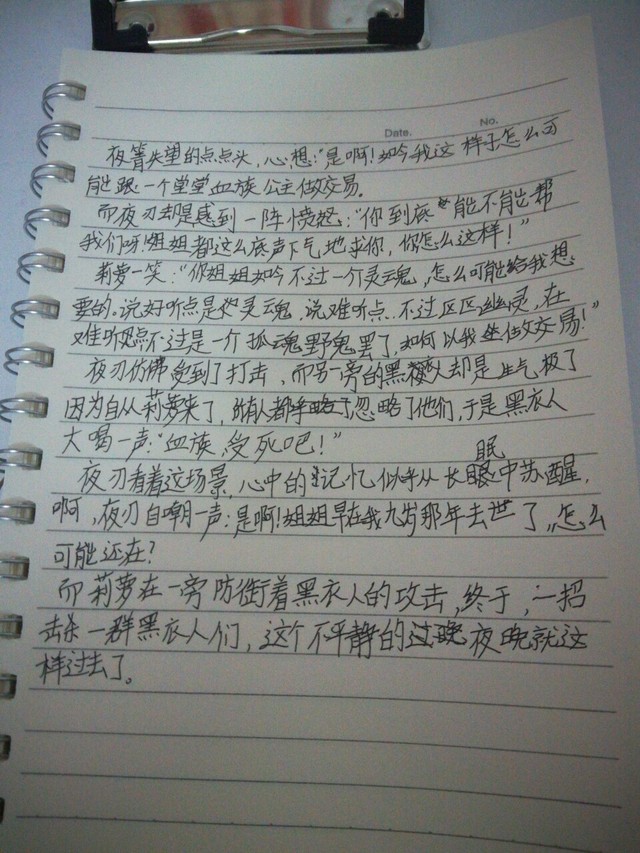 Date.
No.
夜箐失望的点点头,心想:"是啊!如今我这样子怎么可
能跟一个堂堂血族公主做交易。
而夜刃却是感到一阵愤怒:"你到底能不能帮
我们呀!姐姐都这么底声下气地求你,你怎么这样!"
莉萝一笑:"你姐姐如今不过一个灵魂,怎么可能给我想
要的.说好听点是灵魂,说难听点.不过区区幽灵,在
难听点不过是一个孤魂野鬼罢了,如何以我做交易!"
夜刃仿佛受到了打击,而另一旁的黑衣人却是生气极了
因为自从莉萝来了,所有人都忽略了他们,于是黑衣人
大喝一声:"血族,受死吧!"
夜刃看着这场景,心中的记忆似乎从长眠中苏醒,
啊,夜刃自嘲一声:是啊!姐姐早在我九岁那年去世了,怎么
可能还在?
而莉萝在一旁防衔着黑衣人的攻击,终于,一招
击杀一群黑衣人们,这个不平静的夜晚就这
样过去了。